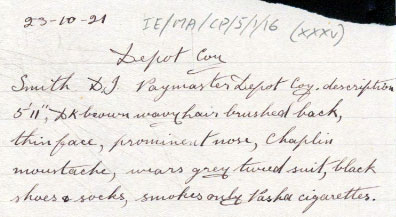 23-10-21 IE/MA/CP/5/1/16 (XXXV)
Depot Coy
Smith D.J Paymaster Depot Coy. description
5'11", Dk brown wavy hair brushed back,
thin face, prominent nose, Chaplin
moustache, wears grey tweed suit, black
shoes & socks, smokes only Pasha cigarettes.